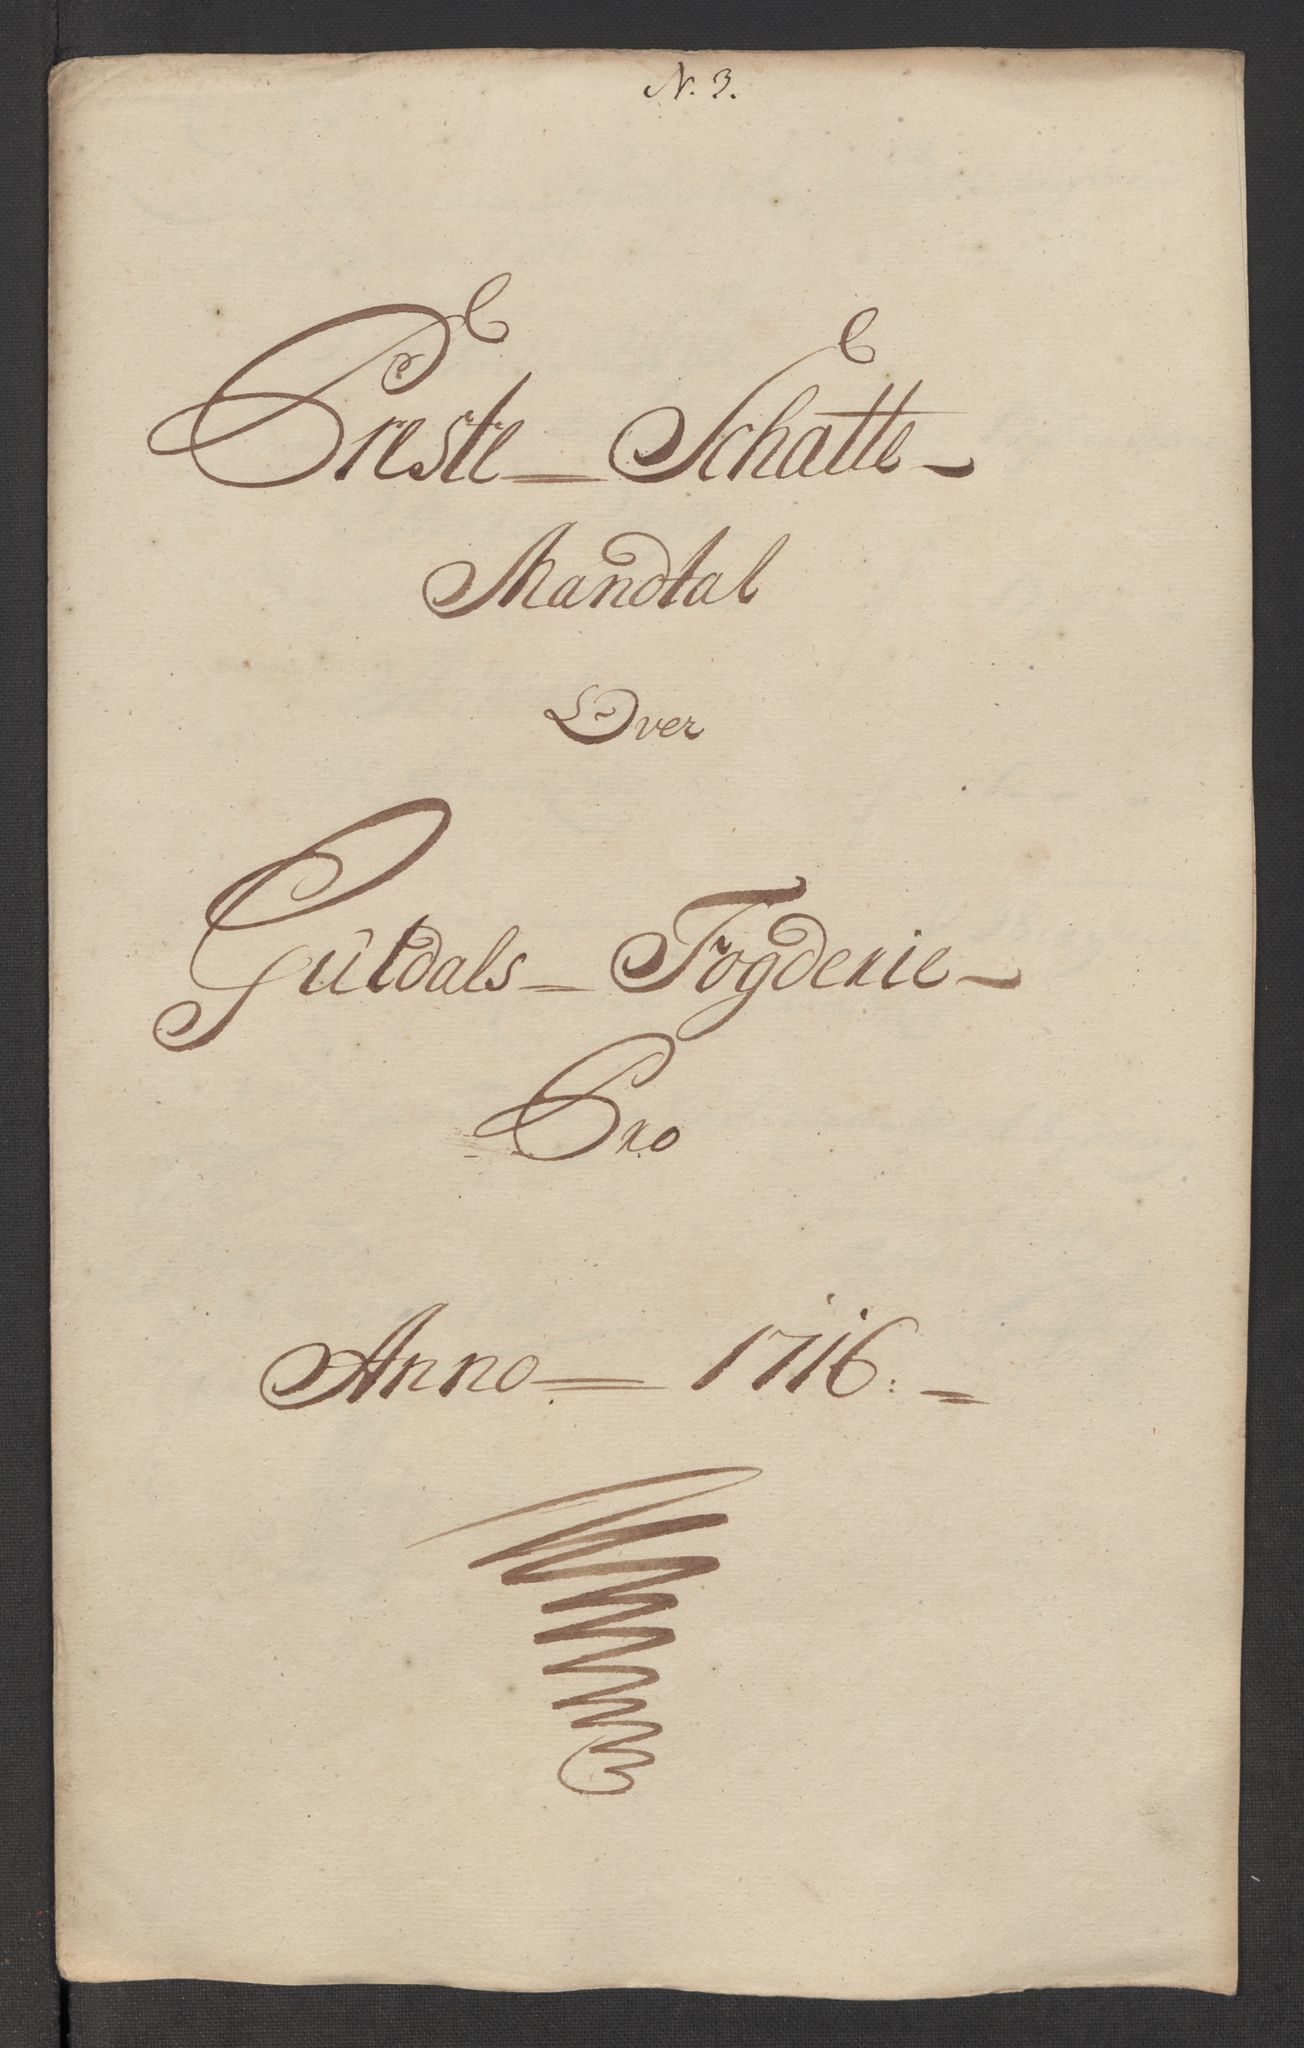 N. 3.
Preste = Schatte -
Mandtal
Over
Guldals = Fogderie -
Pro
Anno = 1716. =